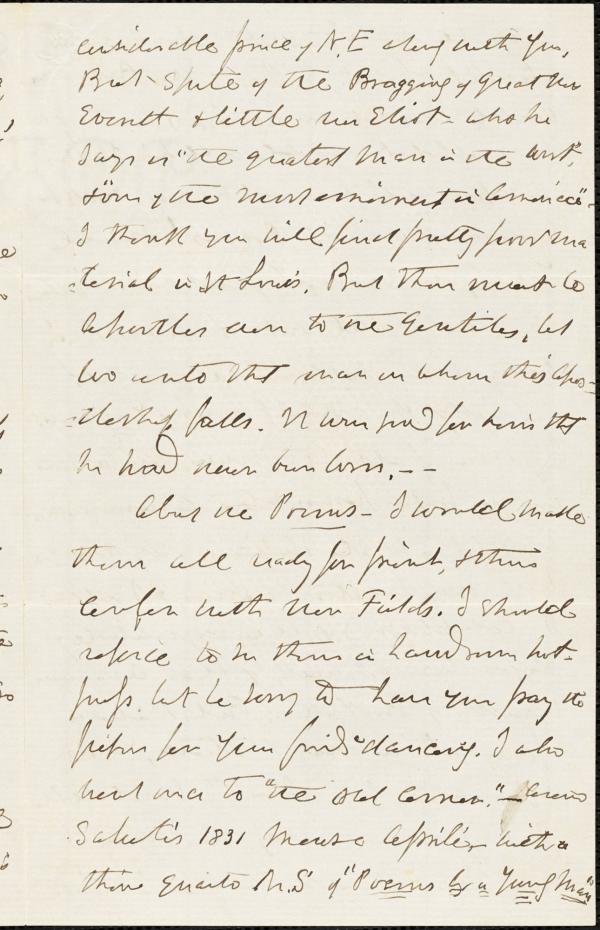 considerable piece of N.E along with you,
But spite of the Bragging of great Mr
Everett & little Mr Eliot - who he
says is "the greatest man in the West",
& "one of the most eminent in America" -
I think you will find pretty poor ma
terial in St Louis. But there must be
Apostles even to the Gentiles, but
wo unto that man on whom this Apos-
tleship falls. It were good for him that
he had never been born. - -
About the Poems - I would make
them all ready for print, & then
confer with Mr Fields. I should
rejoice to see them in handsome hot-
press, but be sorry to have you pay the
piper for your friends dancing. I also
went once to "the old corner." - Anno
Salutis 1831 mense Aprilis with a
thin quarto M.S. of "Poems by a Young Man"